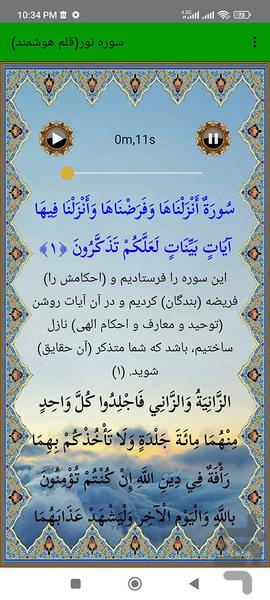 10:34 PM
4.5G
73
سوره نور(قلم هوشمند)
0m,11s
سُورَةٌ أَنْزَلْنَاهَا وَفَرَضْنَاهَا وَأَنْزَلْنَا فِيهَا
آيَاتٍ بَيِّنَاتٍ لَعَلَّكُمْ تَذَكَّرُونَ ﴿۱﴾
این سوره را فرستادیم و (احکامش را)
فریضه (بندگان) کردیم و در آن آیات روشن
(توحید و معارف و احکام الهی) نازل
ساختیم، باشد که شما متذکر (آن حقایق)
شوید. (۱)
الزَّانِيَةُ وَالزَّانِي فَاجْلِدُوا كُلَّ وَاحِدٍ
مِنْهُمَا مِائَةَ جَلْدَةٍ وَلَا تَأْخُذْكُمْ بِهِمَا
رَأْفَةٌ فِي دِينِ اللَّهِ إِنْ كُنْتُمْ تُؤْمِنُونَ
بِاللَّهِ وَالْيَوْمِ الْآخِرِ وَلْيَشْهَدْ عَذَابَهُمَا